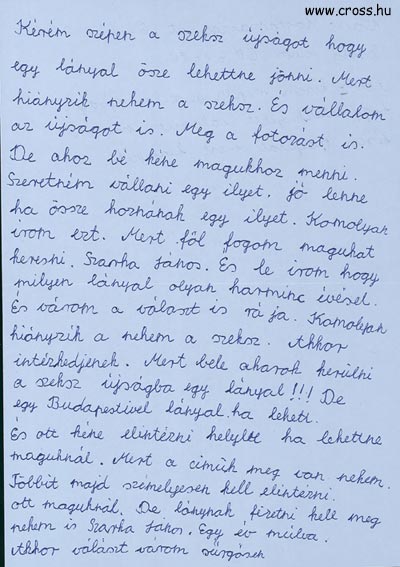 www.cross.hu
Kérém szépen a szeksz újságot hogy
egy lányal ösze lehettne jönni. Mert
hiányzik nehem a szeksz. És vállalom
az újságot is. Meg a fotozást is.
De ahoz bé kéne magukhoz menni.
Szeretném vállani egy ilyet. jó lenne
ha össze hoznának egy ilyet. Komolyan
irom ezt. Mert föl fogom magukat
keresni. Szarka János. És le irom hogy
milyen lányal olyan harminc évésel.
És várom a választ is rá ja. Komolyan
hiányzik a nehem a szeksz. Akkor
intézkedjenek. Mert bele akarok kerülni
a szeksz újságba egy lányal!!! De
egy Budapestivel lányal ha lehett.
És ott kéne elintézni helybe ha lehettne
maguknál. Mert a cimük meg van nehem.
Többit majd személyesen kell elintézni.
ott maguknál. De lánynak fizetni kell meg
nehem is Szarka János. Egy év múlva.
Akkor választ várom sürgösen